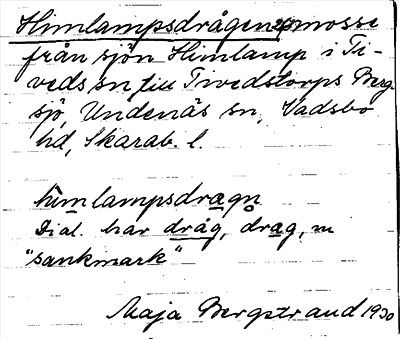 Himlampsdrågen mosse
från sjön Himlamp i Ti-
veds sn till Tivedstorps Berg
sjö, Undenäs sn, Vadsbo
hd, Skarab. l.
himlampsdrægn̥
Dial. har dråg, dræg, m
"sankmark"
Maja Bergstrand 1930